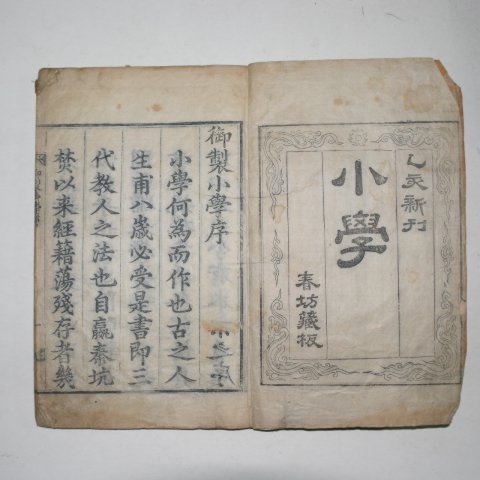 乙亥新刊
小學
春坊藏板
御製小學序
小學何為而作也古之人
生甫八歲必受是書即三
代教人之法也自嬴秦坑
焚以来經籍蕩殘存者幾